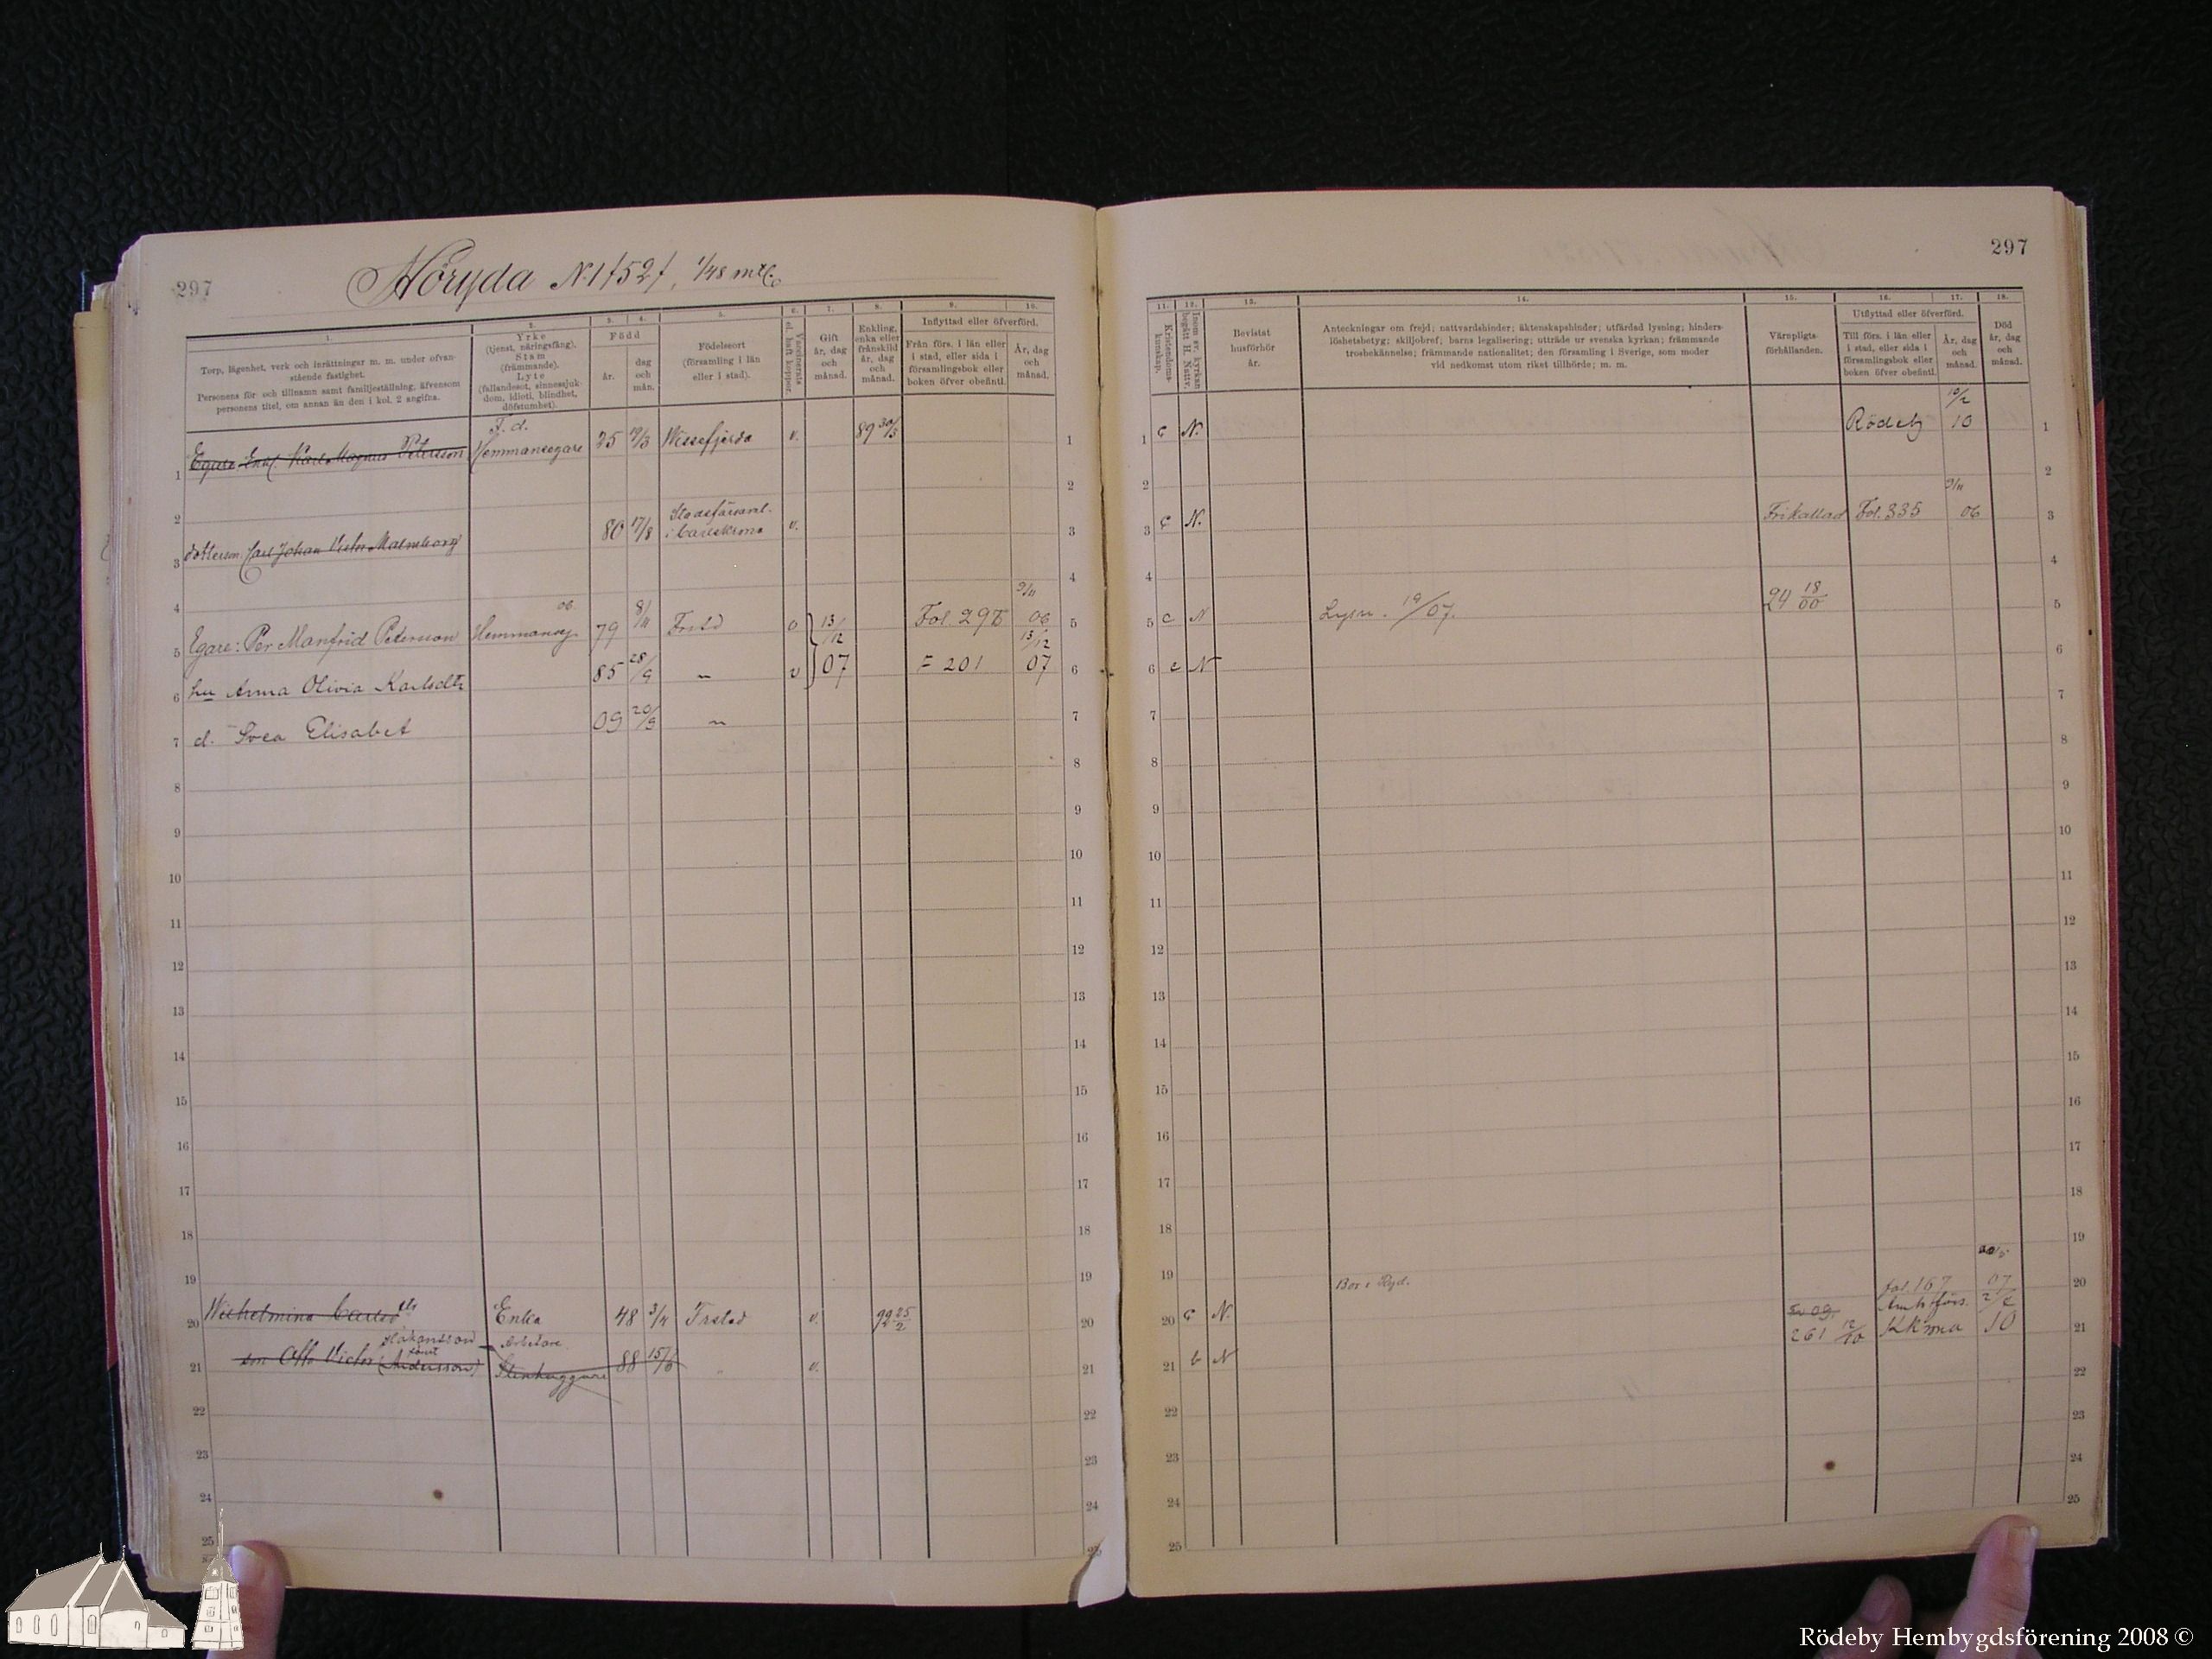 297
Höryda N:1 /52/, 1/48 mtl
1. 2. 3. 4. 5. 6. 7. 8. 9. 10.
Torp, lägenhet, verk och inrättningar m. m. under ofvan-
stående fastighet.
Personens för- och tillnamn samt familjeställning, äfvensom
personens titel, om annan än den i kol. 2 angifna.
Yrke
(tjenst, näringsfång).
Stam
(främmande).
Lyte
(fallandesot, sinnessjuk-
dom, idioti, blindhet,
döfstumhet).
Född
år.
dag
och
mån.
Födelseort
(församling i län
eller i stad).
Vaccinerats
el. haft koppor.
Gift
år, dag
och
månad.
Enkling,
enka eller
frånskild
år, dag
och
månad.
Inflyttad eller öfverförd.
Från förs. i län eller
i stad, eller sida i
församlingsbok eller
boken öfver obefintl.
År, dag
och
månad.
1 Egare Enkl. Karl Magnus Petersson F. d. Hemmansegare 25 19/3 Wissefjerda v. 89 30/3 1
2 2
3 dotterson Carl Johan Victor Malmborg 80 17/8 Stadsförsaml. i Carlskrona v. 3
4 4
5 Egare: Per Manfrid Petersson Hemmanseg 06 79 8/11 Frstd v 13/12 07 Fol. 298 9/11 06 5
6 hu Anna Olivia Karlsdtr 85 28/9 " v F 201 13/12 07 6
7 d. Svea Elisabet 09 20/9 " 7
8 8
9 9
10 10
11 11
12 12
13 13
14 14
15 15
16 16
17 17
18 18
19 19
20 Wilhelmina Carlsdtr Enka 48 3/4 Frstad v. 92 25/2 20
21 son Otto Victor Håkansson förut (Andersson) Arbetare Stenhuggare 88 15/6 " v. 21
22 22
23 23
24 24
25 25
297
11. 12. 13. 14. 15. 16. 17. 18.
Kristendoms-
kunskap.
Inom sv. kyrkan
begått H. Nattv.
Bevistat
husförhör
år.
Anteckningar om frejd; nattvardshinder; äktenskapshinder; utfärdad lysning; hinders-
löshetsbetyg; skiljobref; barns legalisering; utträde ur svenska kyrkan; främmande
trosbekännelse; främmande nationalitet; den församling i Sverige, som moder
vid nedkomst utom riket tillhörde; m. m.
Värnpligts-
förhållanden.
Utflyttad eller öfverförd.
Till förs. i län eller
i stad, eller sida i
församlingsbok eller
boken öfver obefintl.
År, dag
och
månad.
Död
år, dag
och
månad.
1 c N. Rödeby 10 1
2 2
3 c N. Frikallad Fol. 335 9/11 06 3
4 4
5 c N Lysn. 19/07. 24 18/00 5
6 c N 6
7 7
8 8
9 9
10 10
11 11
12 12
13 13
14 14
15 15
16 16
17 17
18 18
19 19
20 c N. Bor i Ryd. fol. 167 07 20
21 b N 261 12/10 Amir. förs. KKrona 10 21
22 22
23 23
24 24
25 25
Rödeby Hembygdsförening 2008 ©